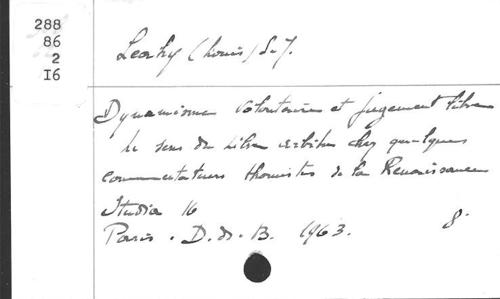 288
86
2
I6
Leahy (Louis) S.J.
Dynamisme volontaire et jugement libre
le sens du libre arbitre chez quelques
commentateurs thomistes de la Renaissance
Studia 16
Paris. D.d.B. 1963. 8°